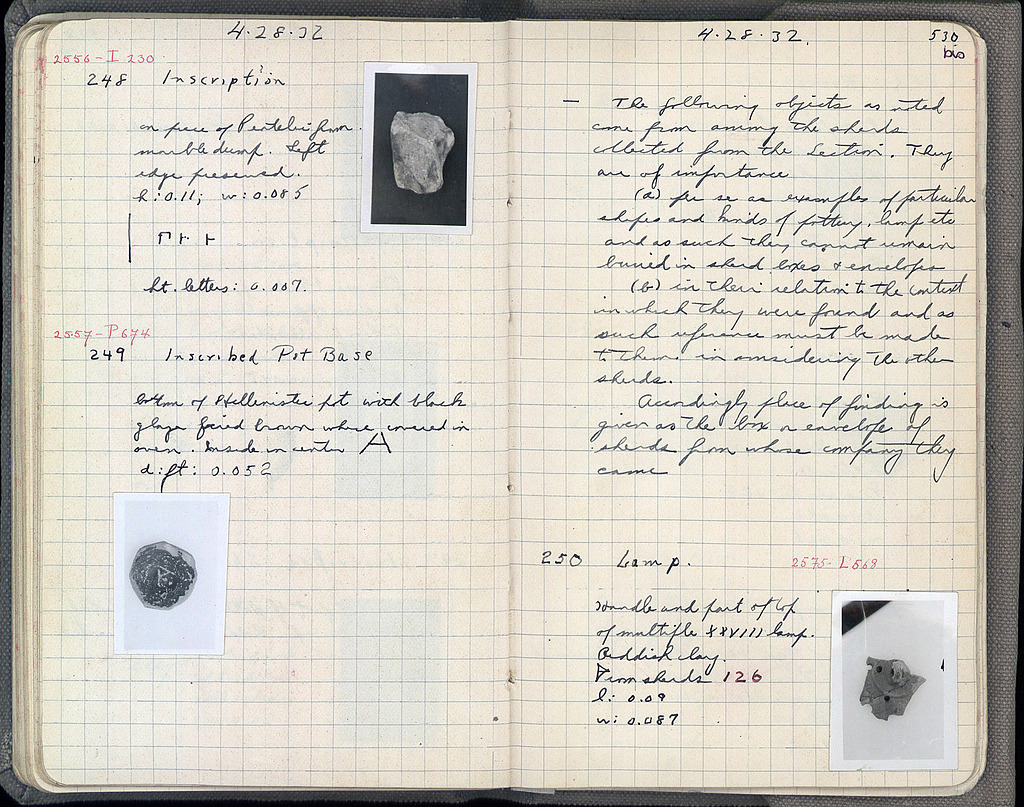 4·28·32
2556-I 230
248 Inscription
on piece of Pentelic from
marble dump. Left
edge preserved.
h: 0.11; w: 0.085
ht. letters: 0.007.
2557-P674
249 Inscribed Pot Base
bottom of Hellenistic pot with black
glaze fired brown where covered in
oven. Inside in center A
d: ft: 0.052
4·28·32.
530
bis
— The following objects as noted
come from among the sherds
collected from the Section. They
are of importance
(a) per se as examples of particular
shapes and kinds of pottery, lamps etc
and as such they cannot remain
buried in sherd boxes & envelopes
(b) in their relation to the context
in which they were found and as
such reference must be made
to them in considering the other
sherds.
Accordingly place of finding is
given as the box or envelope of
sherds from whose company they
came
250 Lamp. 2575-L568
Handle and part of top
of multiple XXVIII lamp.
Reddish clay.
From sherds 126
l: 0.09
w: 0.087